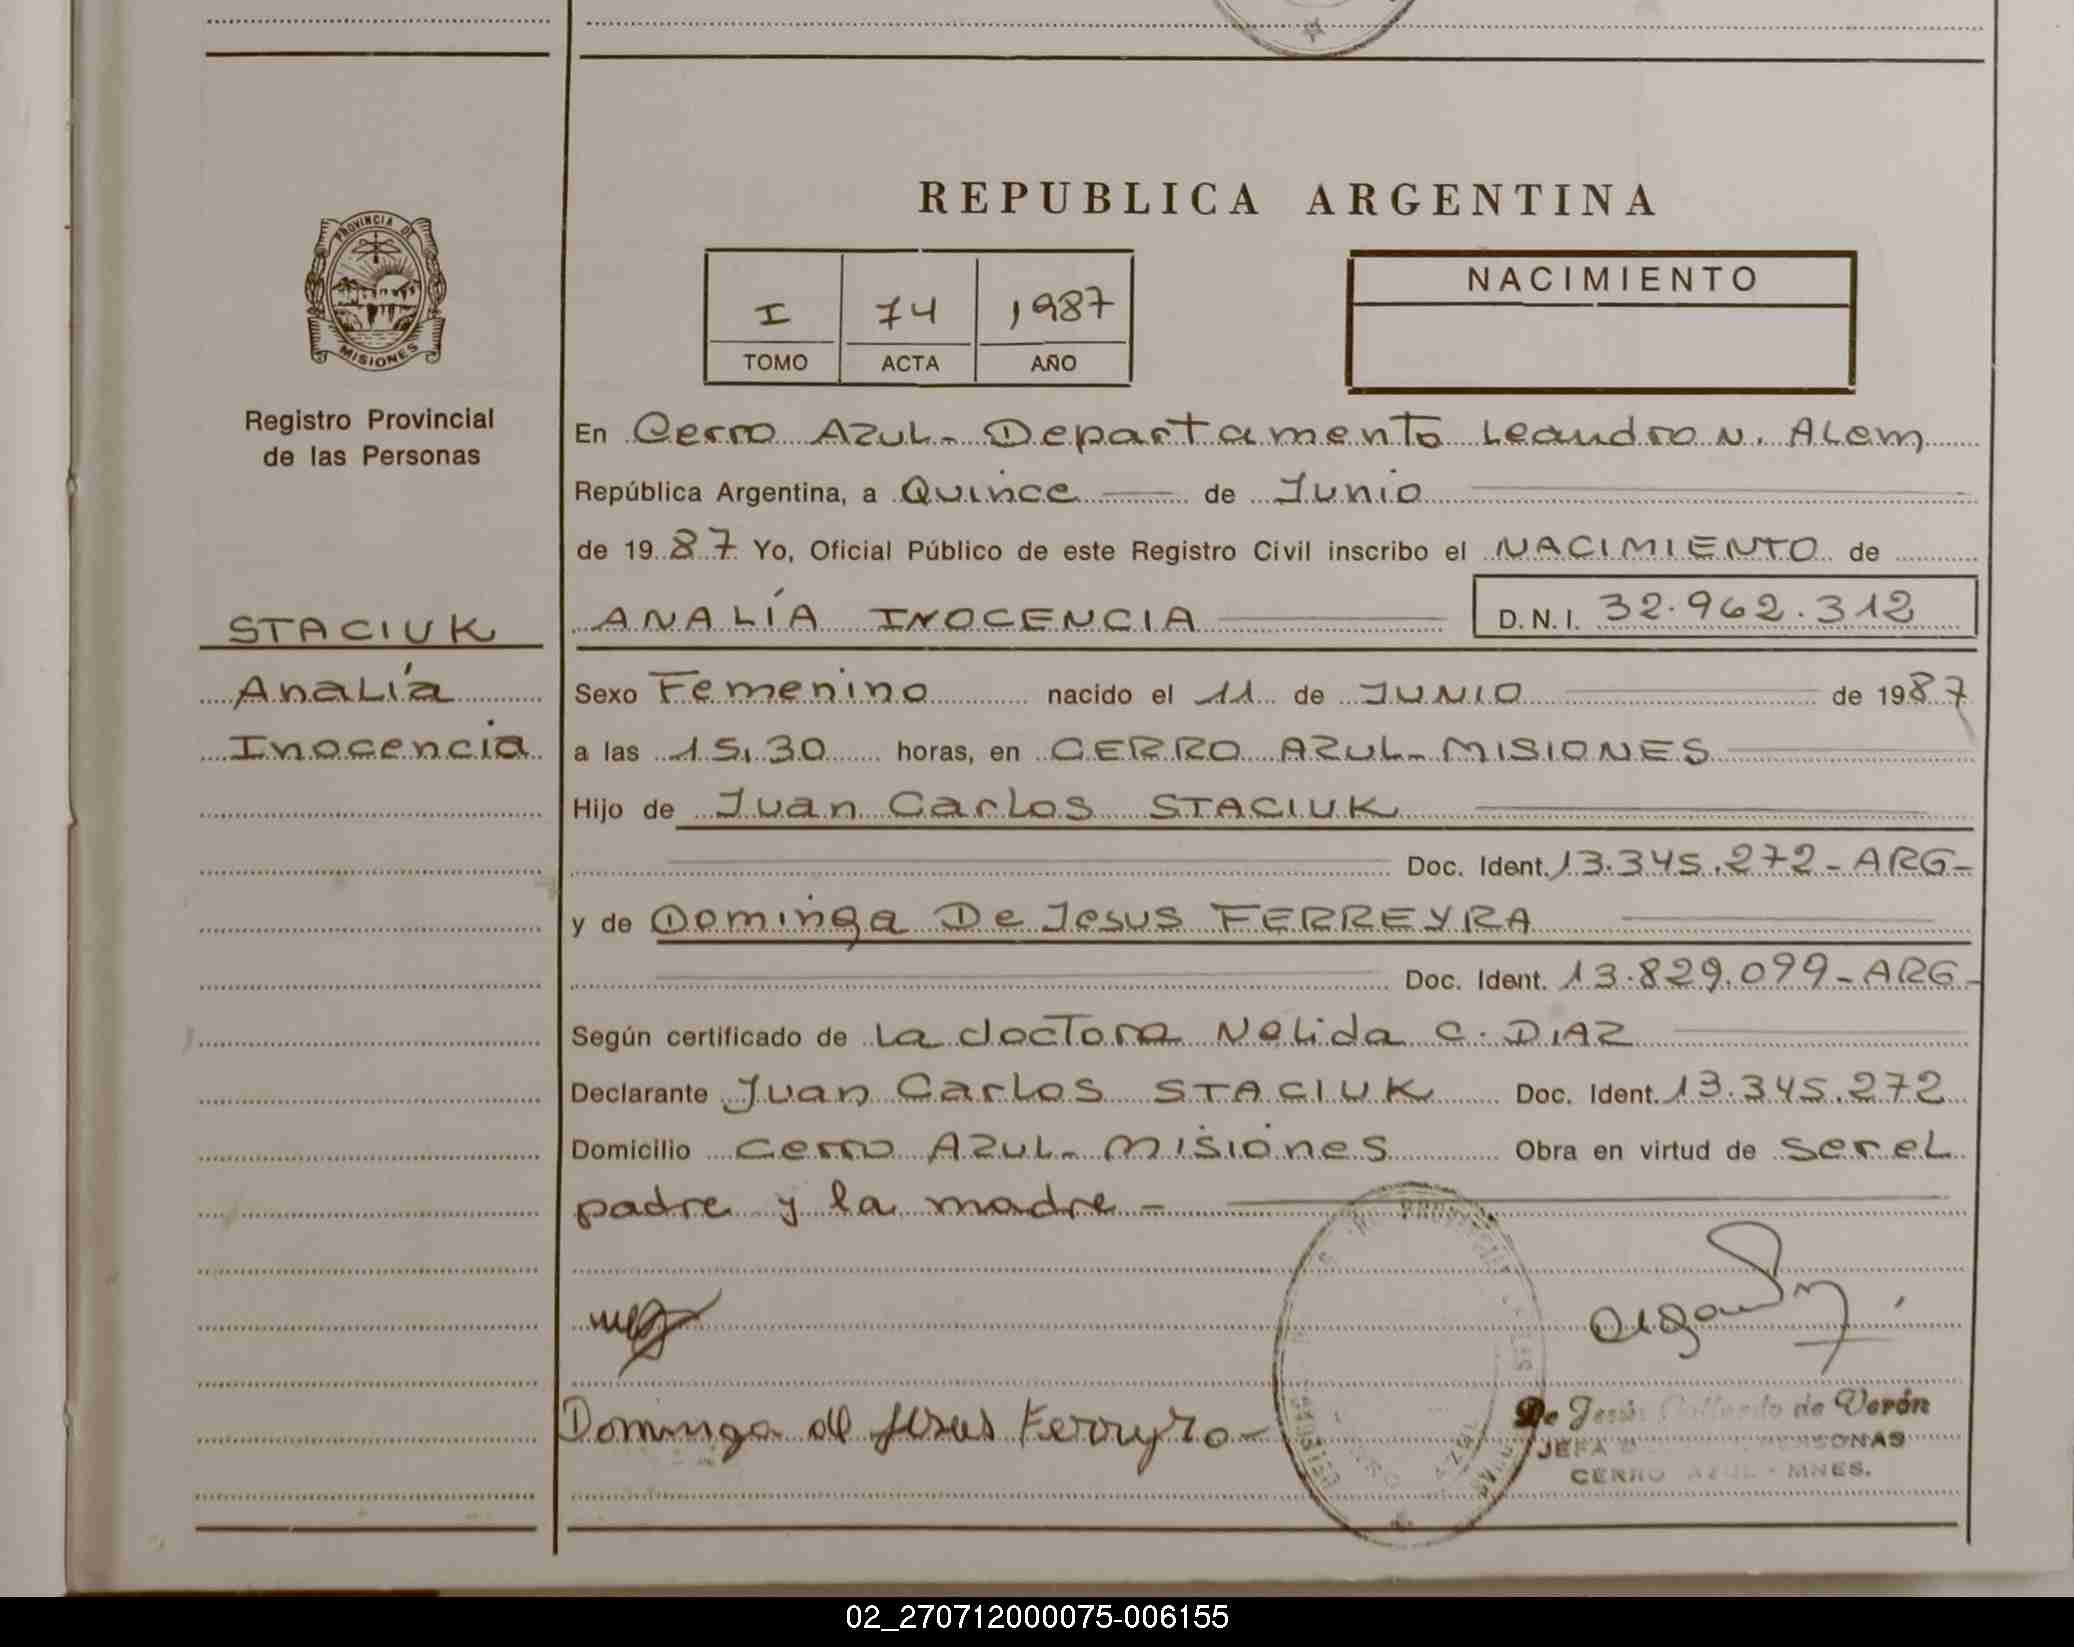 REPUBLICA ARGENTINA
PROVINCIA DE
MISIONES
Registro Provincial
de las Personas
I 74 1987
TOMO ACTA AÑO
NACIMIENTO
En Cerro AZUL- Departamento Leandro N. ALem
República Argentina, a Quince de Junio
de 1987 Yo, Oficial Público de este Registro Civil inscribo el NACIMIENTO de
STACIUK
Analía
Inocencia
ANALÍA INOCENCIA D.N.I. 32.962.312
Sexo Femenino nacido el 11 de JUNIO de 1987
a las 15,30 horas, en CERRO AZUL- MISIONES
Hijo de Juan Carlos STACIUK
Doc. Ident. 13.345.272-ARG-
y de Dominga De Jesus FERREYRA
Doc. Ident. 13.829.099-ARG-
Según certificado de La doctora Nelida C. DIAZ
Declarante Juan Carlos STACIUK Doc. Ident. 13.345.272
Domicilio Cerro AZUL- Misiones Obra en virtud de ser eL
padre y la madre -
Dominga de Jesus Ferreyra-
De Jesús de Verón
JEFA PERSONAS
CERRO AZUL - MNES.
02_270712000075-006155